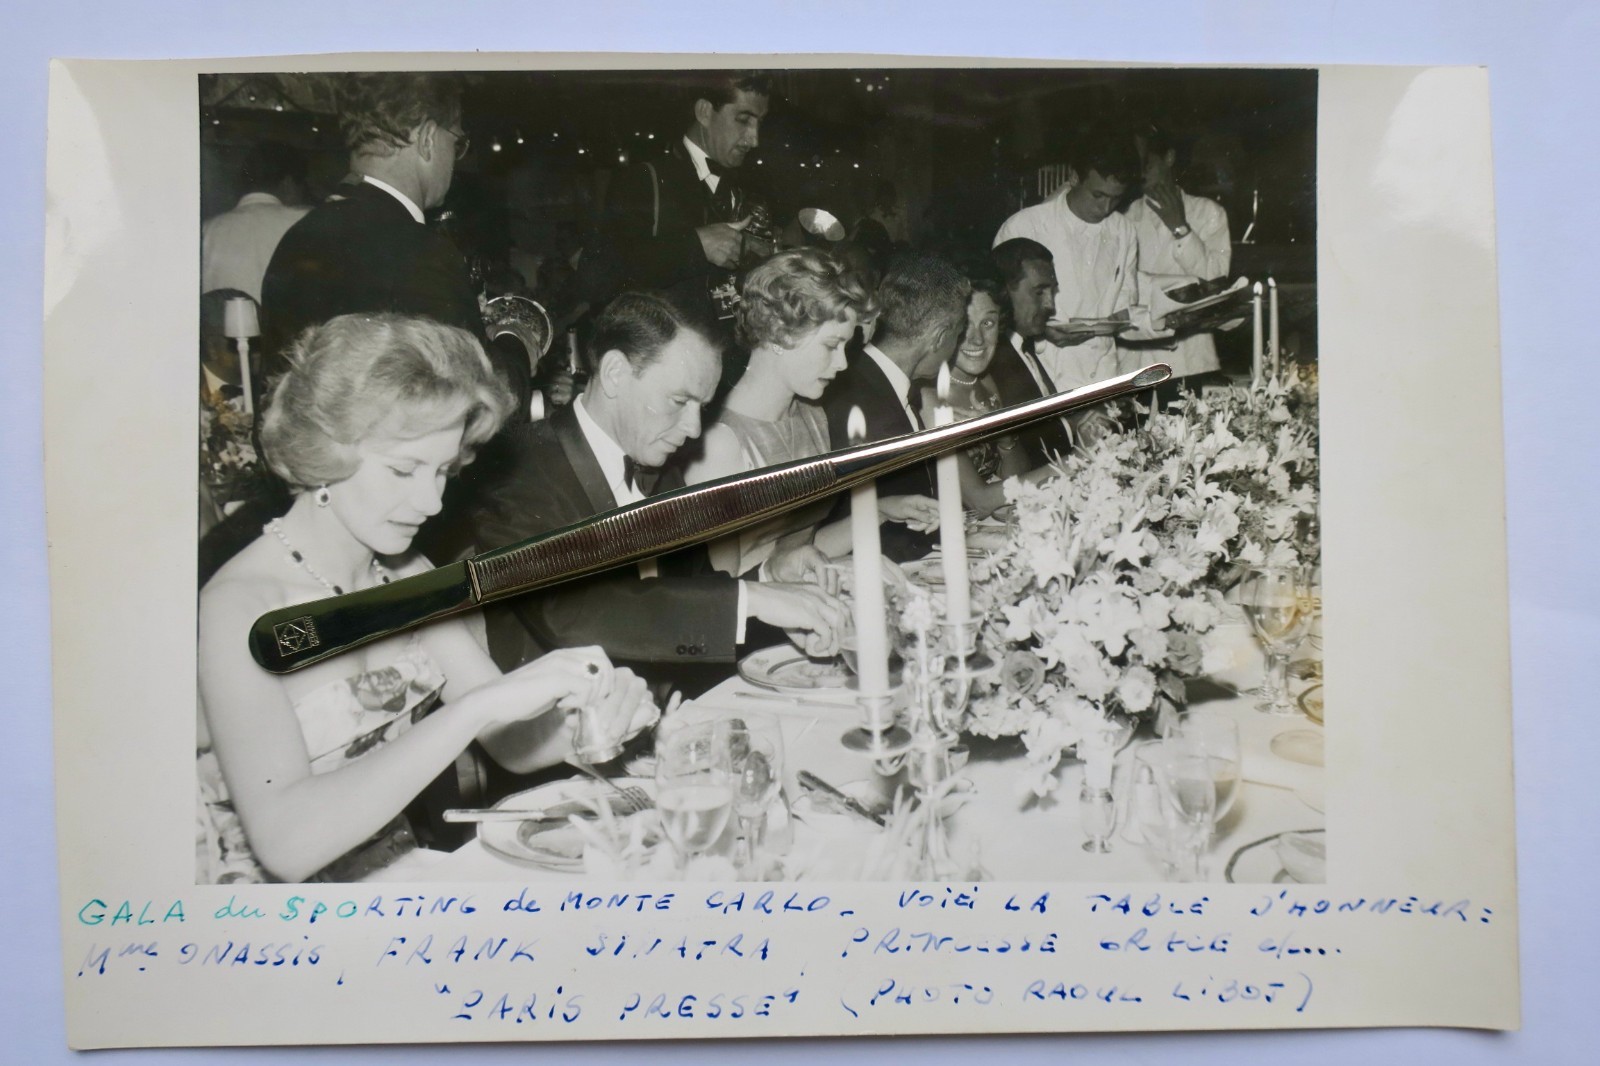 GALA du SPORTING de MONTE CARLO _ VOICI LA TABLE D'HONNEUR :
Mme ONASSIS, FRANK SINATRA, PRINCESSE GRACE et...
"PARIS PRESSE" (PHOTO RAOUL LIBOT)